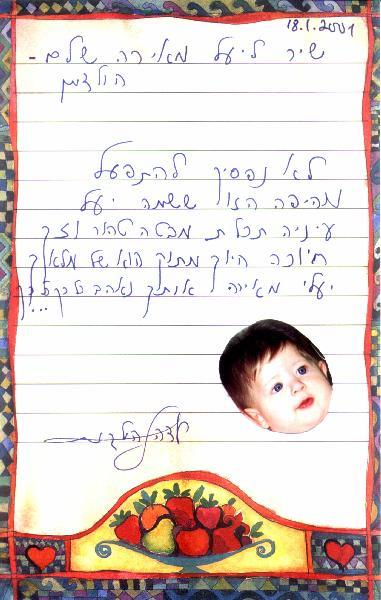 18.1.2001
שיר ליעל מאירה שלם -
הולדמן
לא נפסיק להתפעל
מהיפה הזו ששמה יעל
עיניה תכלת מבטה טהור וזך
חיוכה חיוך מתוק הוא של מלאך
יעלי מאירה אותך נאהב כל כך כל כך
...